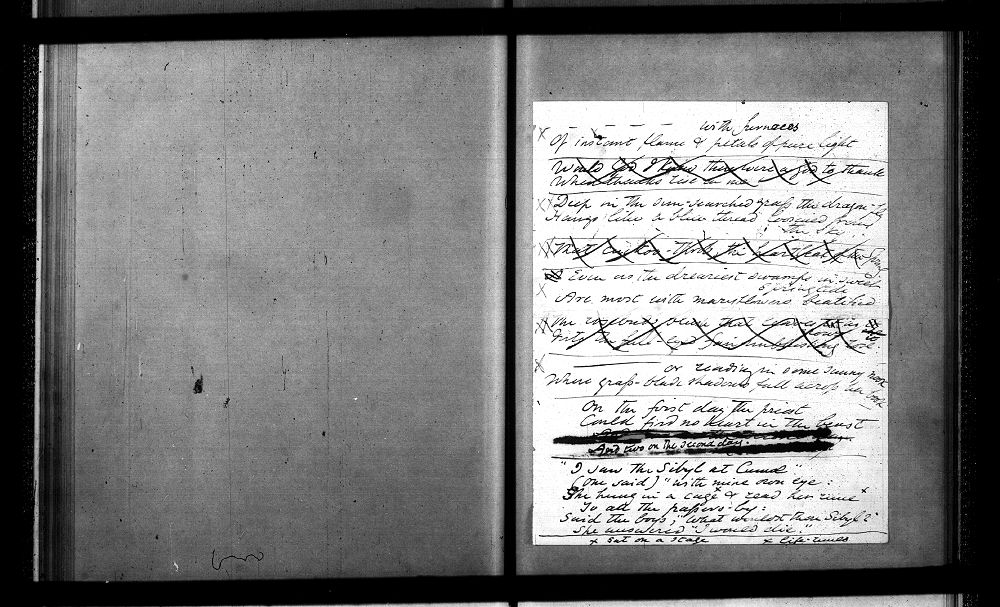 with furnaces
Of instant flame & petals of pure light
Would God I knew there were a god to thank
When thanks rise in me
Deep in the sun-searched grass the dragon-fly
Hangs like a blue thread loosened from
the sky
That the
Even as the dreariest swamps in sweet
Springtide
Are most with maryflowers beatified
that
or reading in some sunny nook
Where grass-blade shadows fall across her book
On the first day the priest
Could find no heart in the beast
And two on the second day.
"I saw the Sibyl at Cumæ"
(One said) "with mine own eye:
She hung in a cage x & read her rune x
To all the passers-by:
Said the boys, "What wouldst thou Sibyl?"
She answered "I would die."
x sat on a stage x life-runes